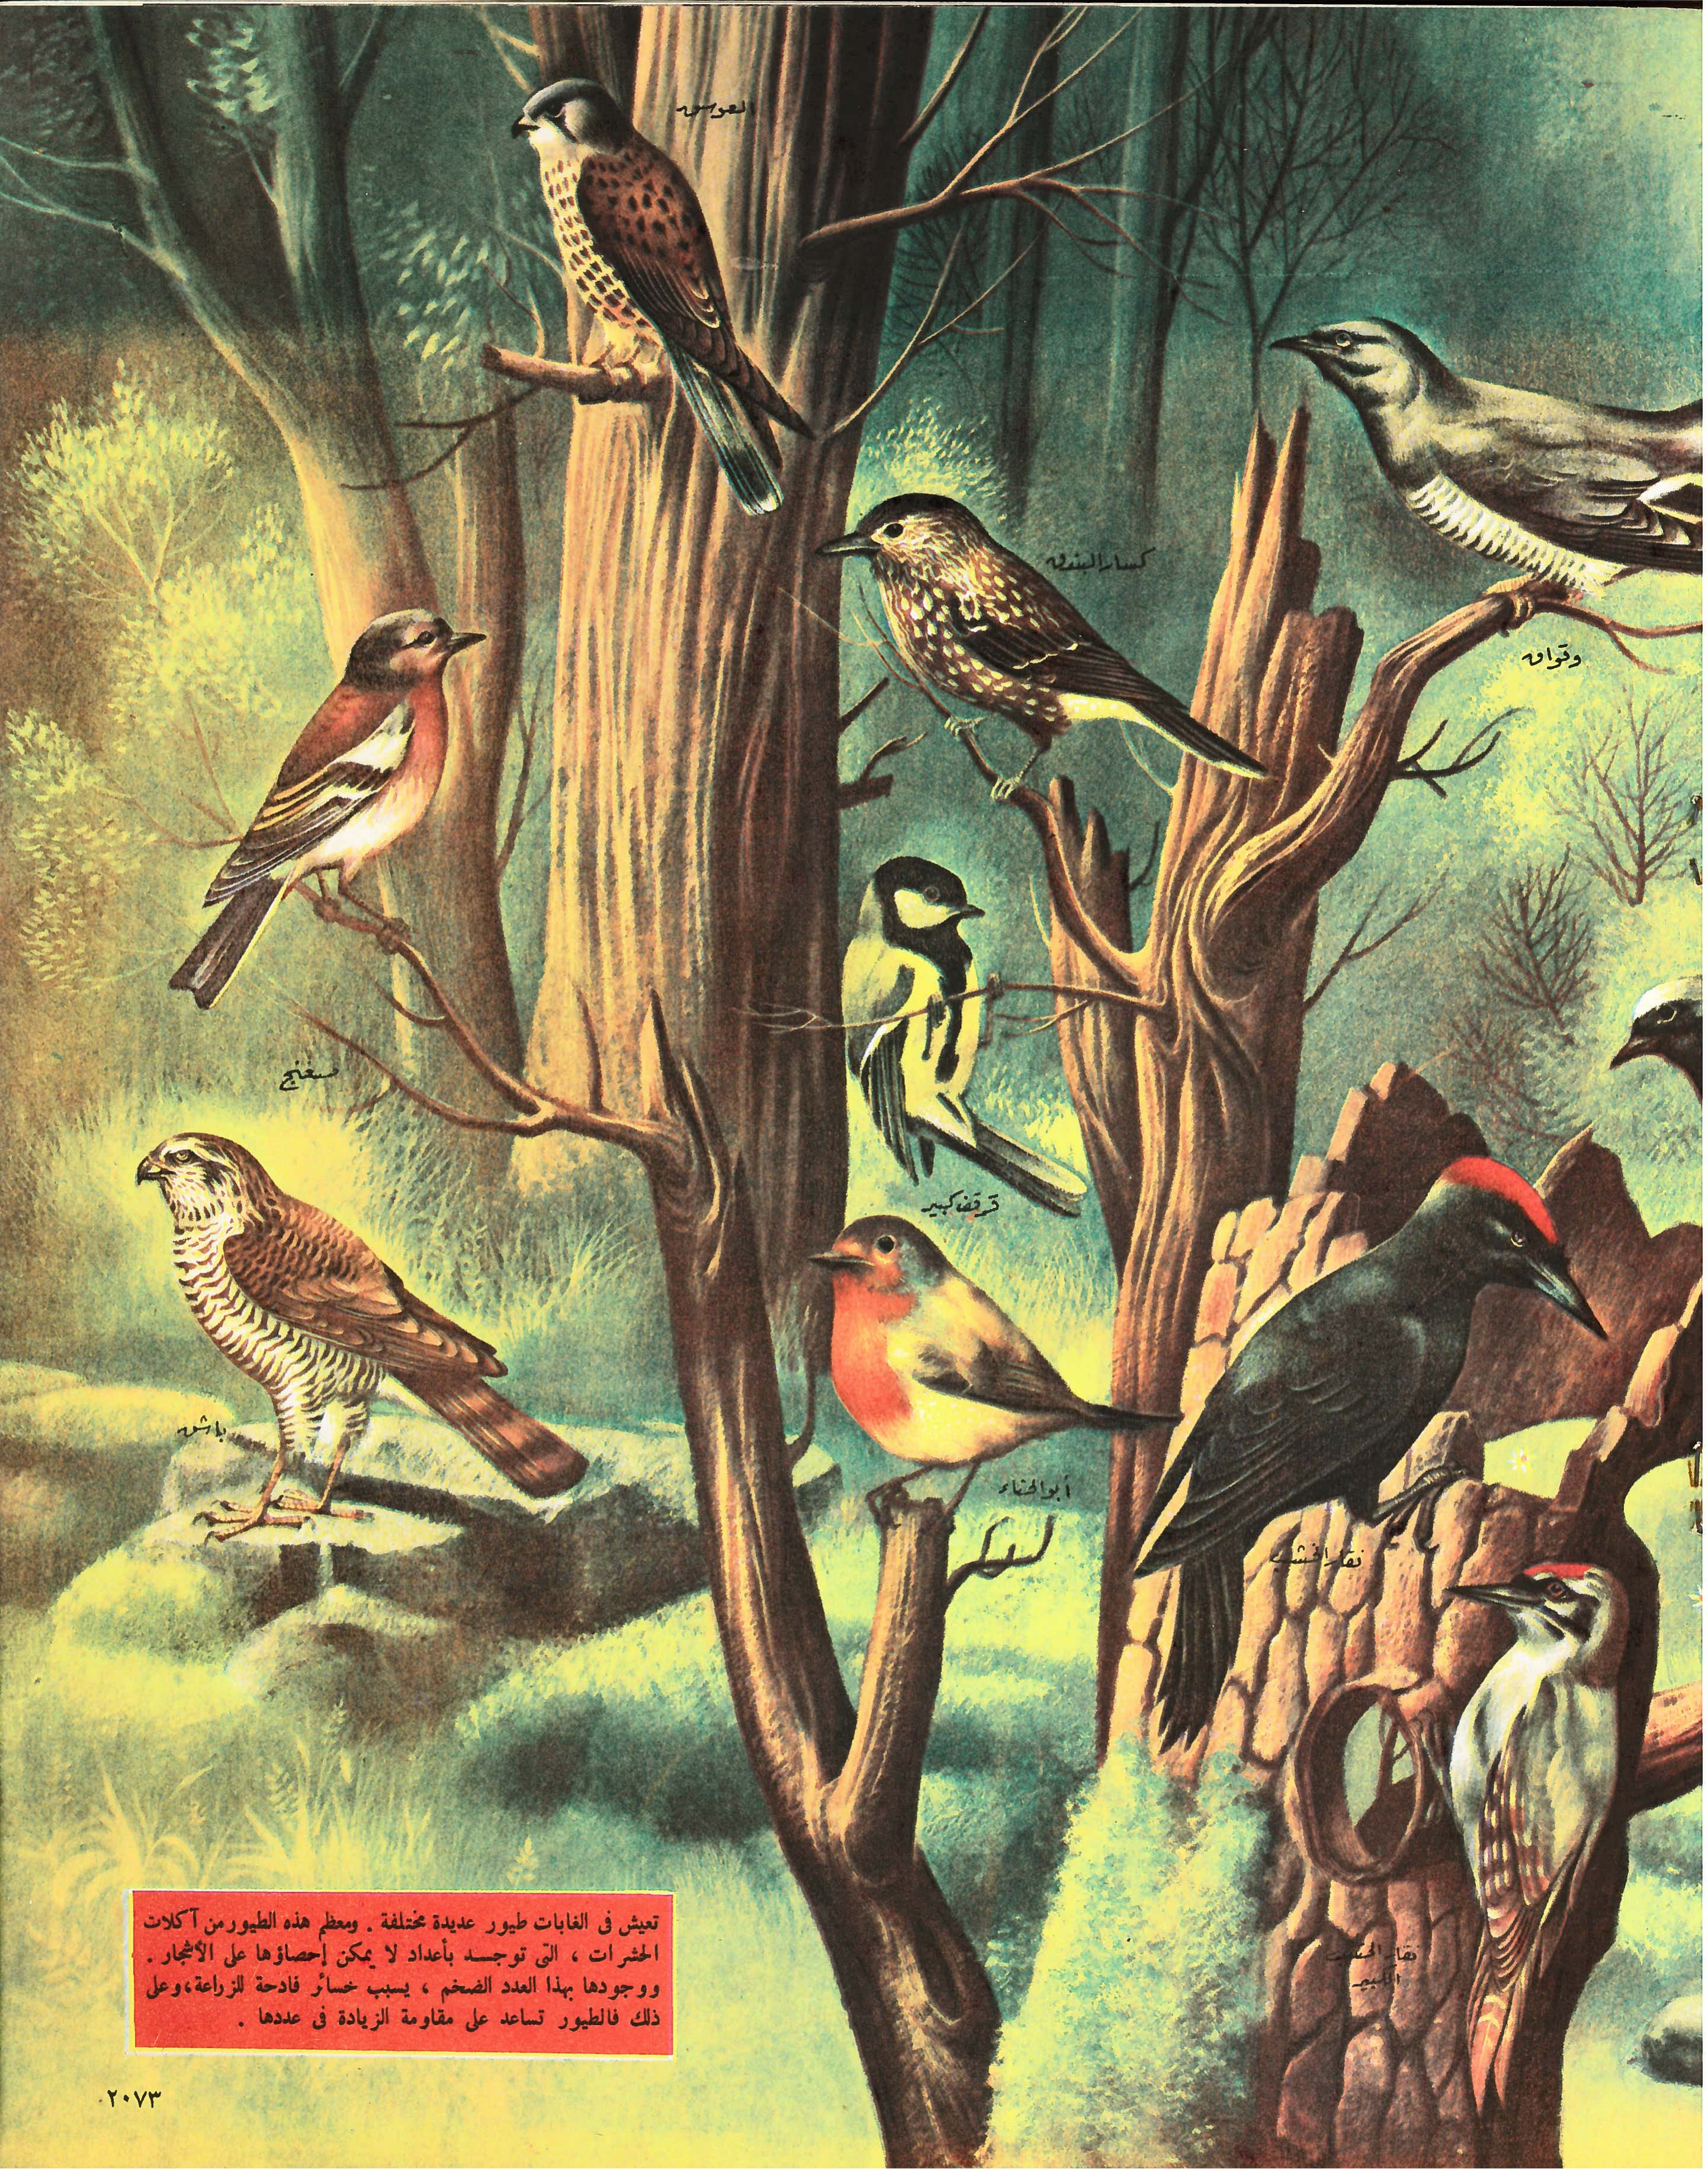 العوسق
كسار البندق
وقواق
صغنج
قرقف كبير
باشق
أبو الحناء
نقار الخشب
نقار الخشب
الكبير
تعيش فى الغابات طيور عديدة مختلفة . ومعظم هذه الطيور من آكلات
الحشرات ، التى توجد بأعداد لا يمكن إحصاؤها على الأشجار .
ووجودها بهذا العدد الضخم ، يسبب خسائر فادحة للزراعة ، وعلى
ذلك فالطيور تساعد على مقاومة الزيادة فى عددها .
٢٠٧٣